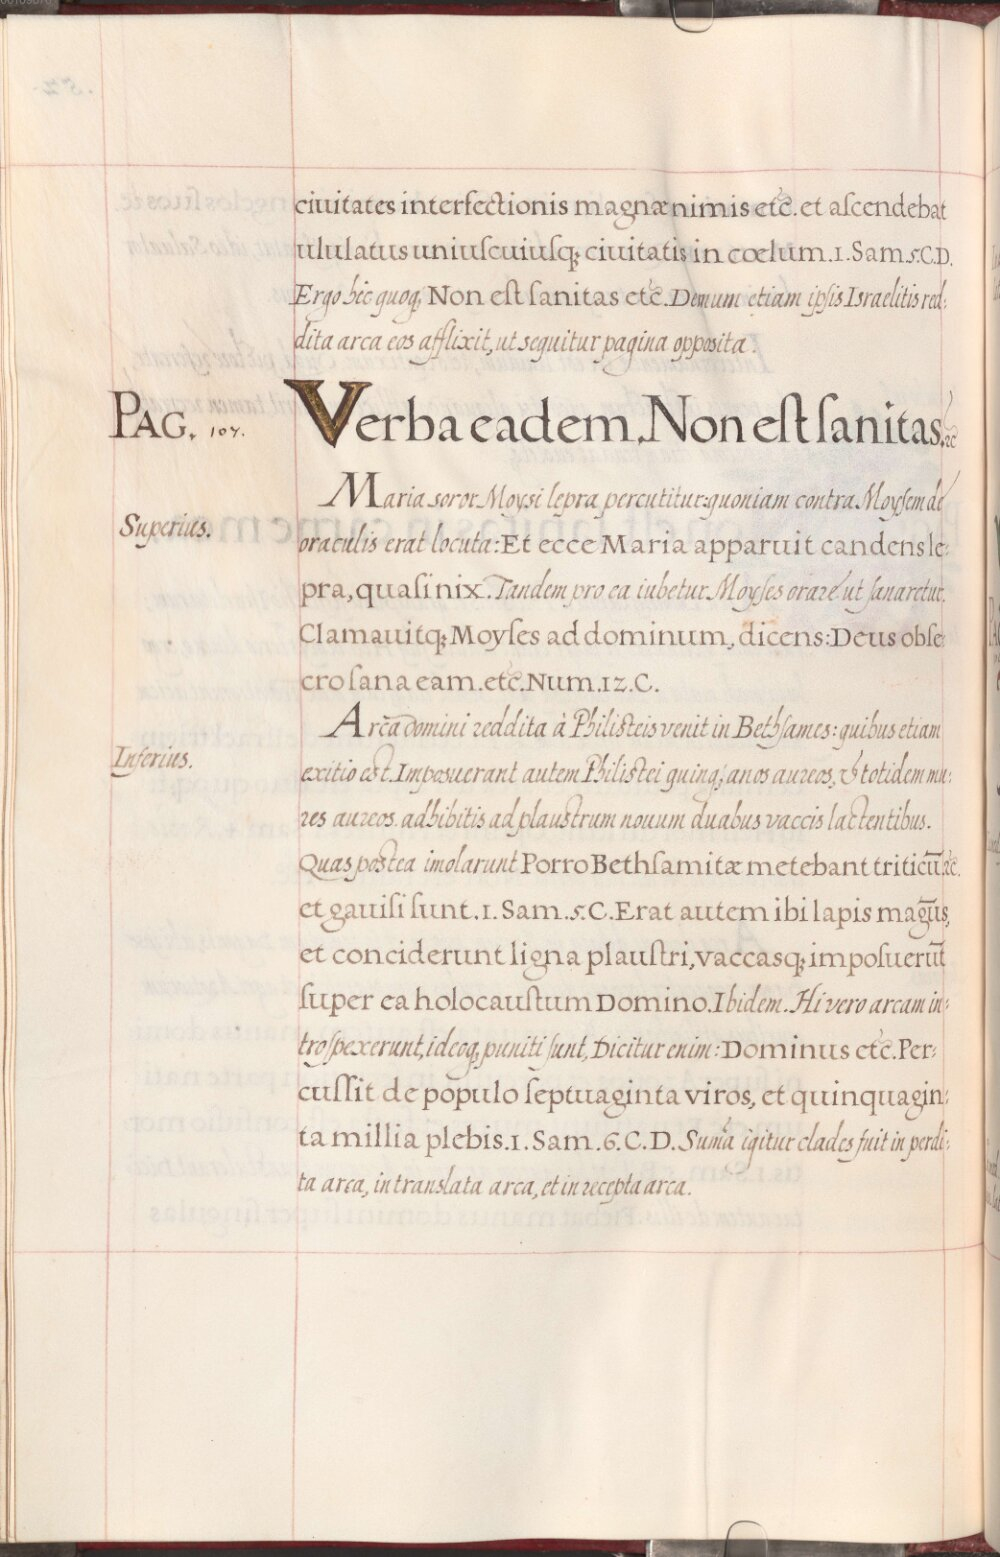 ciuitates interfectionis magnæ nimis etc̃. et aſcendebat
ululatus uniuſcuiuſq; ciuitatis in cœlum. 1. Sam. 5. C. D.
Ergo hic quoq; Non eſt ſanitas etc̃. Demum etiam ipſis Israelitis red:
dita arca eos afflixit, ut sequitur pagina opposita.
PAG. 107.
Verba eadem. Non eſt ſanitas. ec̃
Maria soror Moysi lepra percutitur: quoniam contra Moyſem de
Superius.
oraculis erat locuta: Et ecce Maria apparuit candens le:
pra, quaſi nix. Tandem pro ea iubetur Moyſes orare ut ſanaretur.
Clamauitq; Moyſes ad dominum, dicens: Deus obſe
cro ſana eam. etc̃. Num. 12. C.
Arca domini reddita à Philiſteis venit in Bethſames: quibus etiam
Inferius.
exitio eſt. Imposuerant autem Philiſtei quinq; anos aureos, & totidem mu:
res aureos. adhibitis ad plauſtrum nouum duabus vaccis lactentibus.
Quas poſtea imolarunt Porro Bethſamitæ metebant triticū. ec̃.
et gauiſi ſunt. 1. Sam. 5. C. Erat autem ibi lapis mag̃us,
et conciderunt ligna plauſtri, vaccasq; impoſuerūt
ſuper ea holocauſtum Domino. Ibidem. Hi vero arcam in:
troſpexerunt, ideoq; puniti ſunt, Dicitur enim: Dominus etc̃. Per:
cuſſit de populo ſeptuaginta viros, et quinquagin:
ta millia plebis. 1. Sam. 6. C. D. Sum̃a igitur clades fuit in perdi:
ta arca, in translata arca, et in recepta arca.